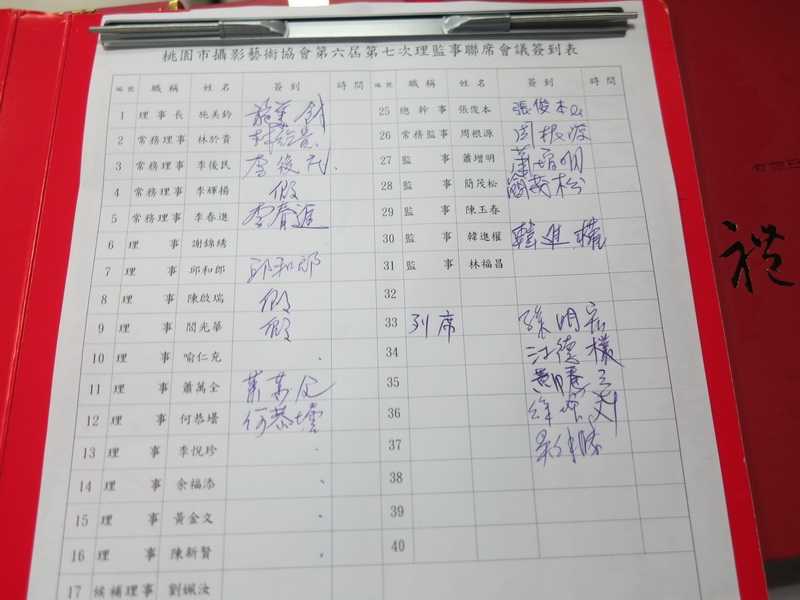 桃園市攝影藝術協會第六屆第七次理監事聯席會議簽到表
編號 職稱 姓名 簽到 時間 編號 職稱 姓名 簽到 時間
1 理事長 施美鈴 施美鈴
2 常務理事 林於貴 林於貴
3 常務理事 李後民 李後民
4 常務理事 李輝揚 假
5 常務理事 李春進 李春進
6 理事 謝錦綉
7 理事 邱和郎 邱和郎
8 理事 陳啟瑞 假
9 理事 閻光華 假
10 理事 喻仁充
11 理事 蕭萬全 蕭萬全
12 理事 何恭壜 何恭壜
13 理事 李悅珍
14 理事 余福添
15 理事 黃金文
16 理事 陳新賢
17 候補理事 劉姵汝
25 總幹事 張俊本 張俊本
26 常務監事 周根源 周根源
27 監事 蕭增明 蕭增明
28 監事 簡茂松 簡茂松
29 監事 陳玉春
30 監事 韓進權 韓進權
31 監事 林福昌
32
33 列席
34 江德樣
35
36
37
38
39
40
禮